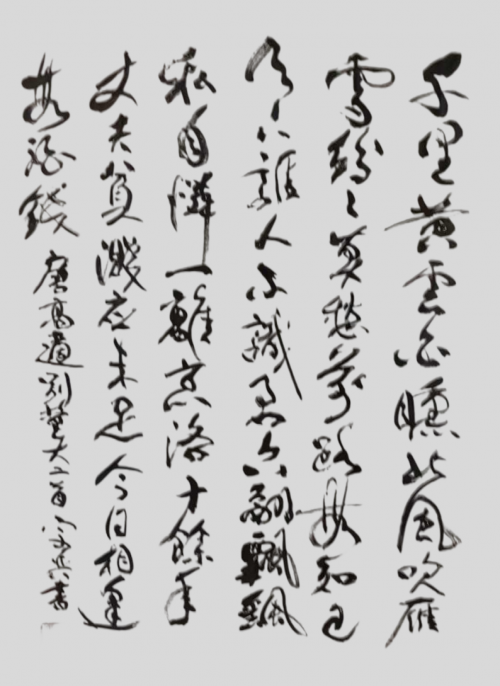 千里黄雲白曛北風吹雁
雪紛々莫愁前路無知己
天下誰人不識君六翮飄颻
私自憐一離京洛十餘年
丈夫貧賤應未足今日相逢
無酒錢 唐高適別董大二首 書